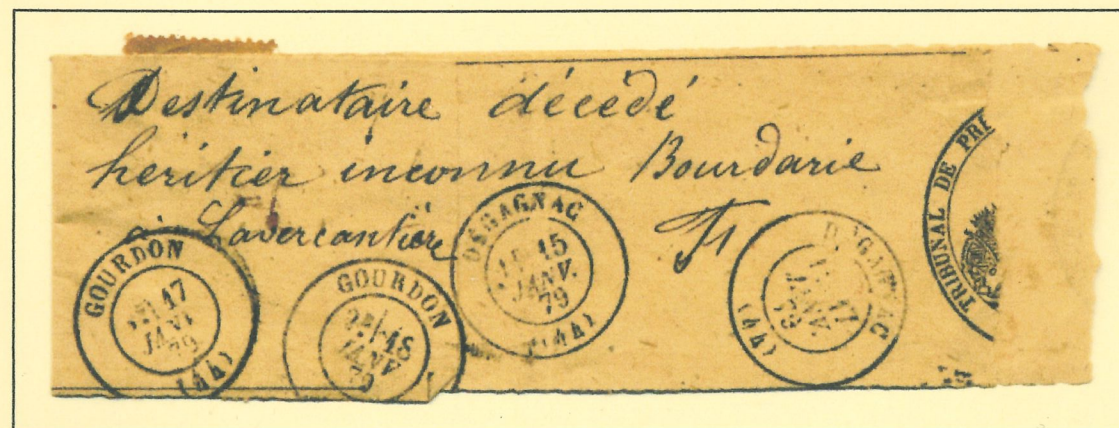 Destinataire décédé
héritier inconnu Bourdarie
à Lavercantière
GOURDON
17
JANV
79
(44)
GOURDON
18
JANV
79
DÉGAGNAC
15
JANV.
79
(44)
DÉGAGNAC
17
JANV.
79
(44)
TRIBUNAL DE PRE